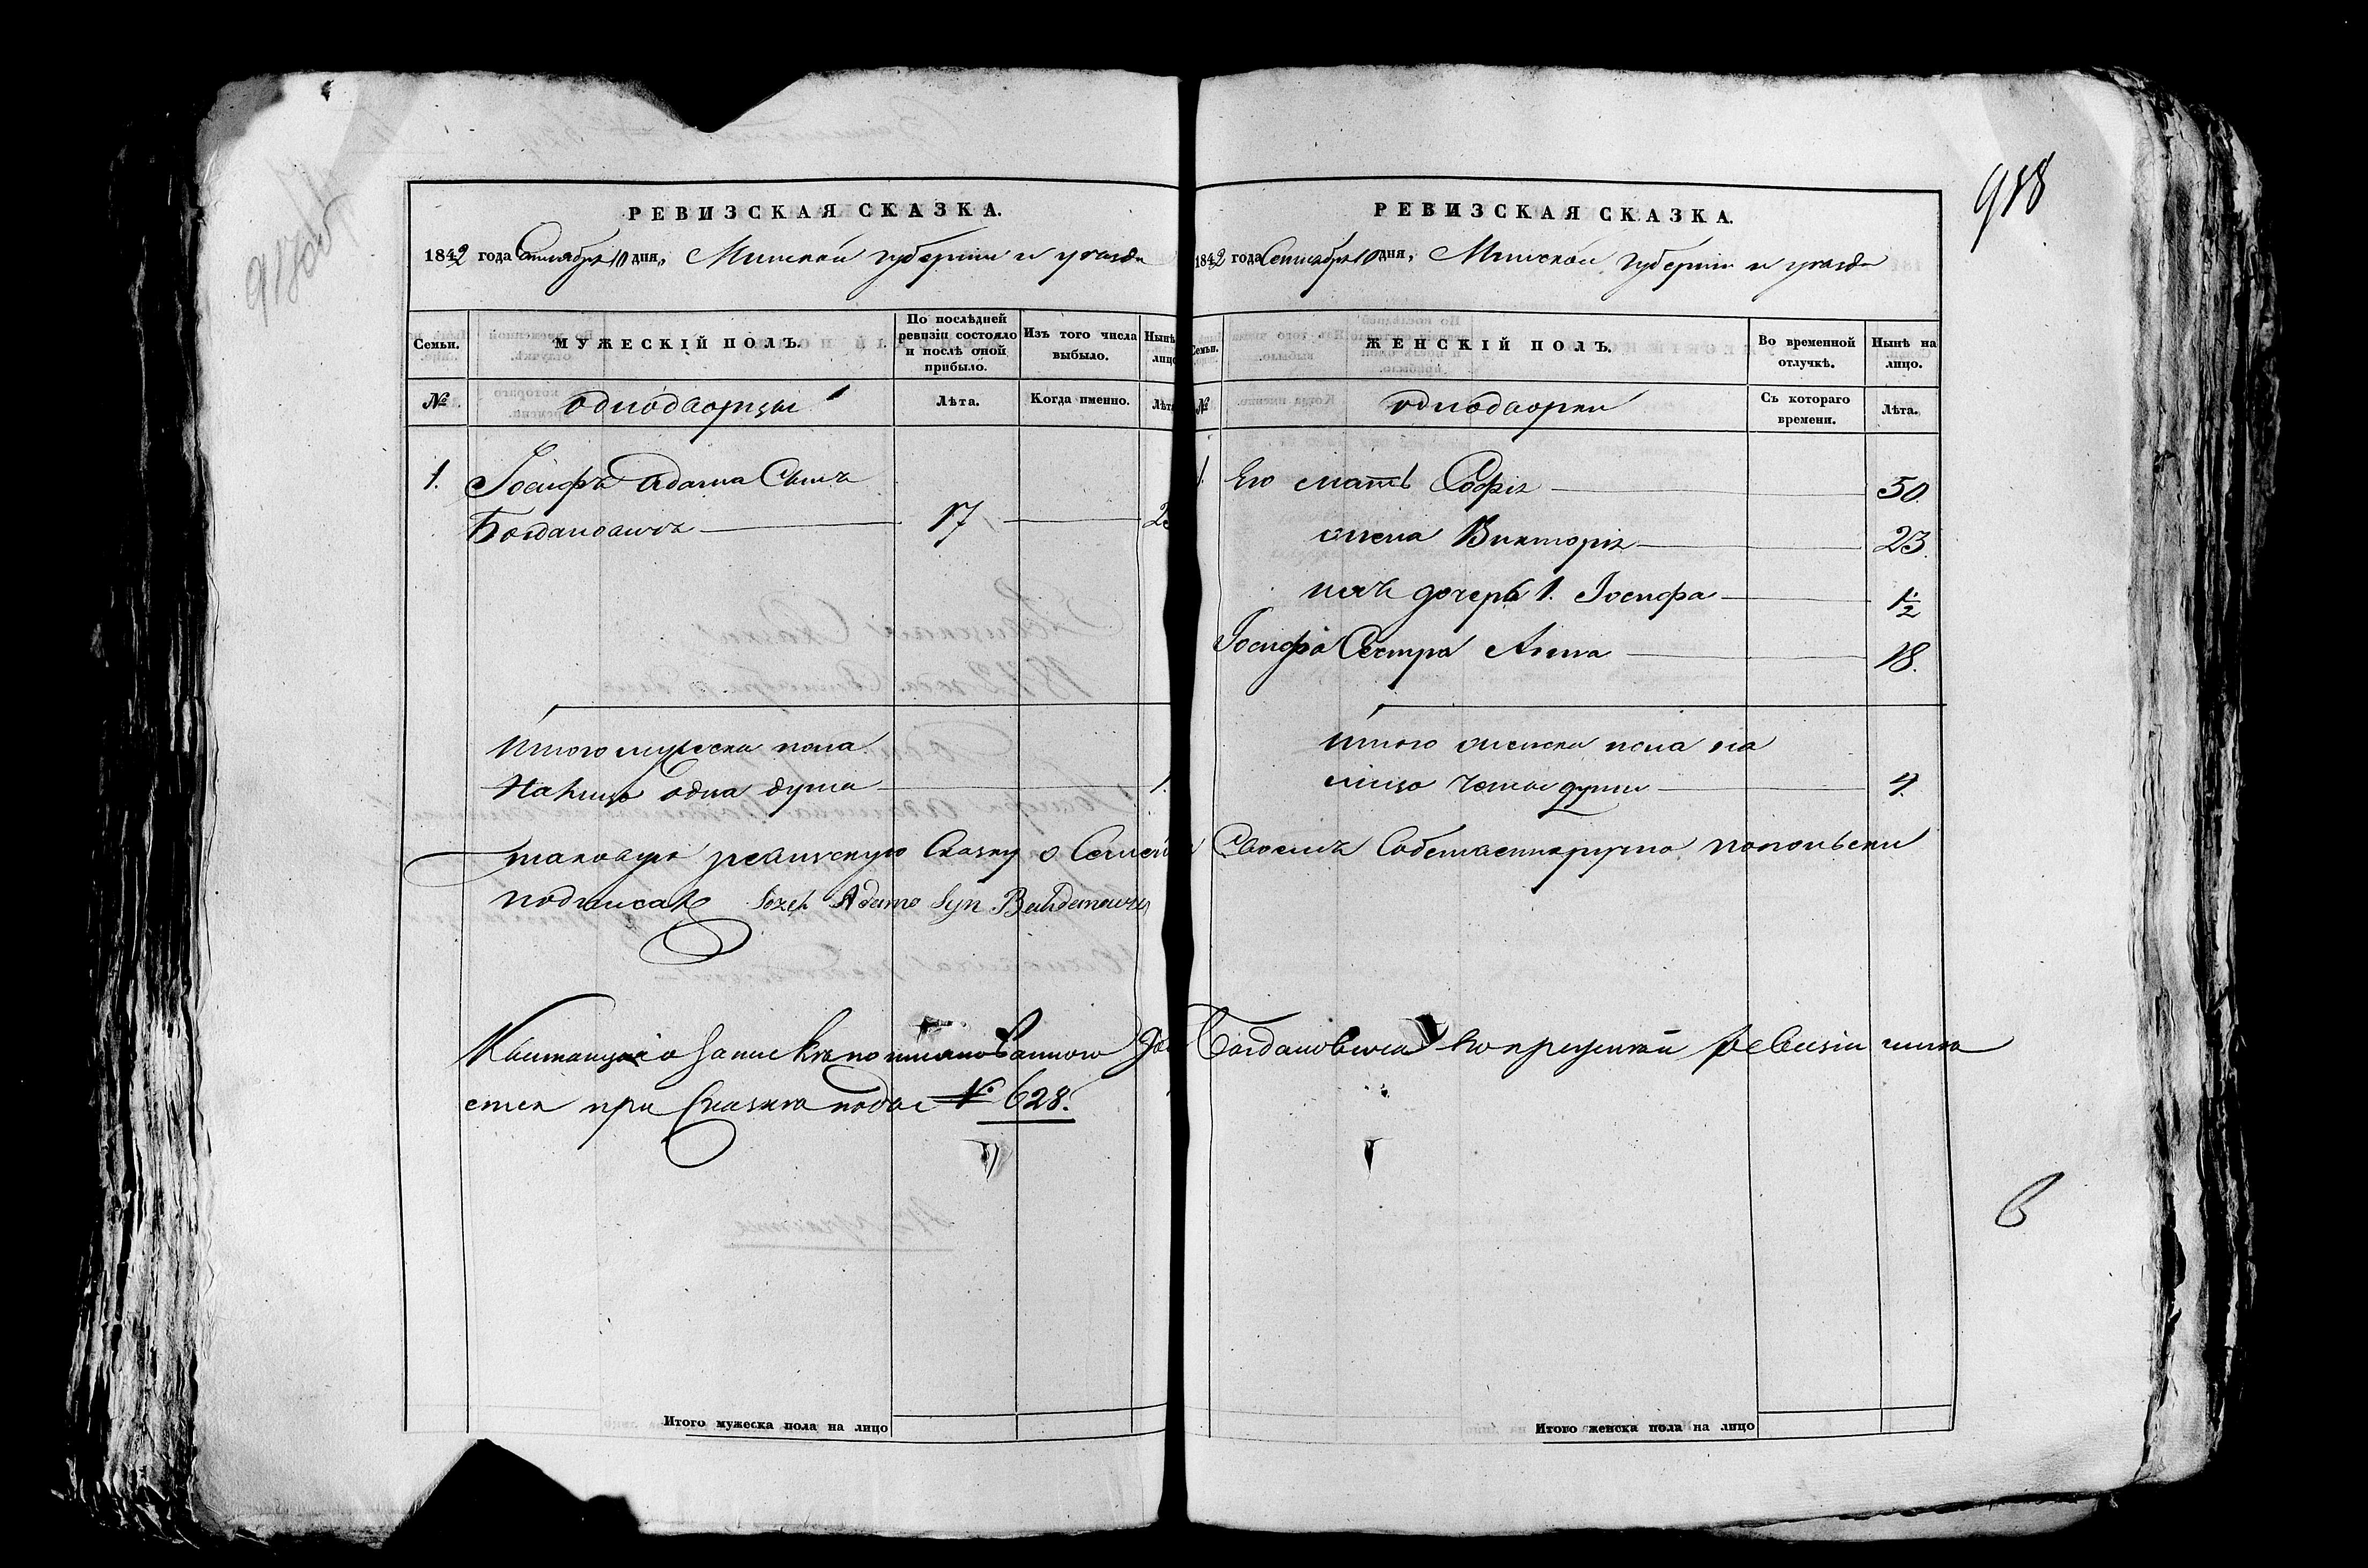 РЕВИЗСКАЯ СКАЗКА.
1842 года Сентября 10 дня, Минской губернии и уезда
Семьи.
МУЖЕСКІЙ ПОЛЪ.
По послѣдней ревизіи состояло и послѣ оной прибыло.
Изъ того числа выбыло.
Нынѣ лицо
№
однодворцы
Лѣта.
Когда именно.
Лѣта
1.
Іосифъ Адама Сынъ
Богдановичъ
17
2
Итого мужеска пола
На лицо одна душа
1.
таковую ревизскую Сказку о Семей
подписалъ Jozef Adama Syn
Квитанція о
при Сказке подъ № 628.
Итого мужеска пола на лицо
918
РЕВИЗСКАЯ СКАЗКА.
1842 года Сентября 10 дня, Минской губернии и уезда
Семьи.
ЖЕНСКІЙ ПОЛЪ.
Во временной отлучкѣ.
Нынѣ на лицо.
№
однодворки
Съ котораго времени.
Лѣта.
1.
Его мать Софія
50
жена Викторія
23.
ихъ дочерь 1. Іосифа
1 1/2
Іосифа Сестра Анна
18.
итого женска пола на
лицо четыре души
4.
Своемъ Собственноручно попольски
Богдановича
ревизіи
в
Итого женска пола на лицо